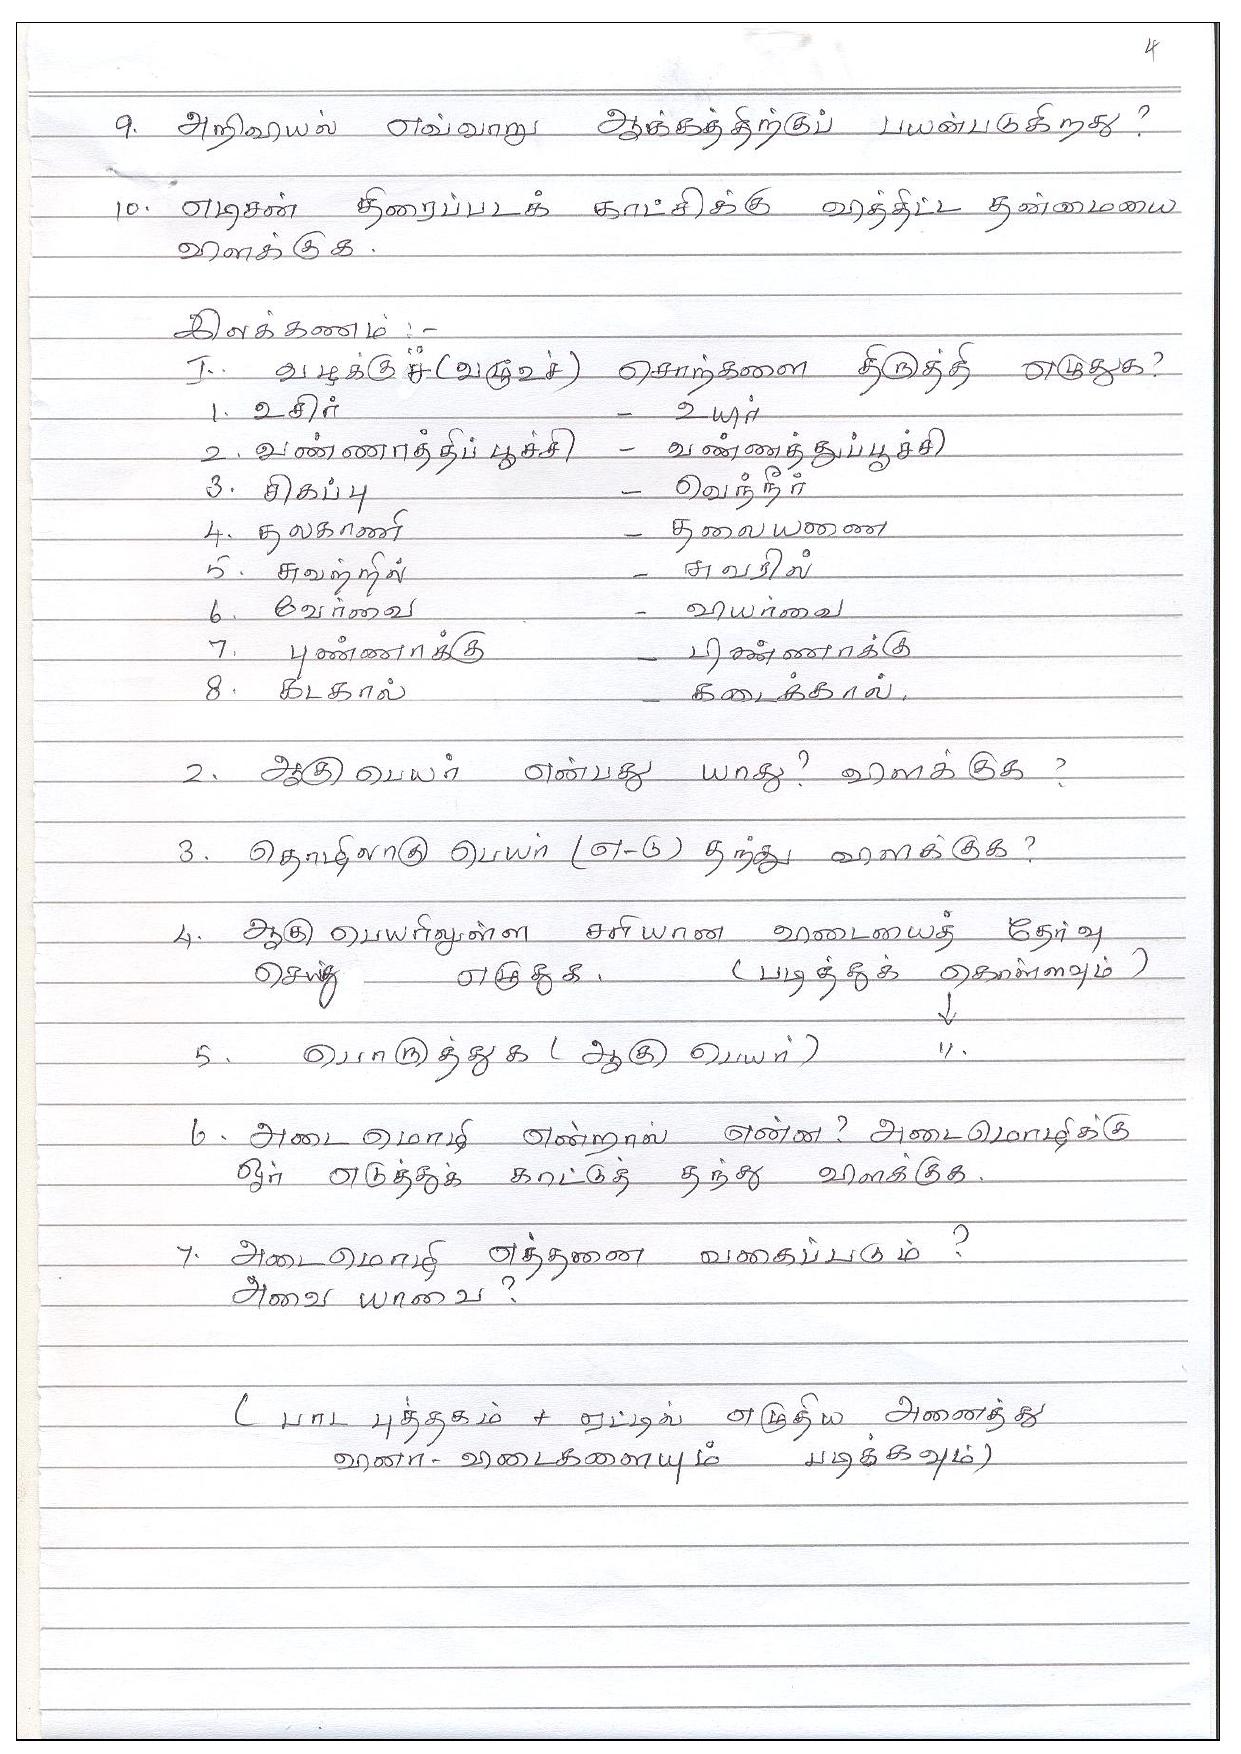 4
9. அறிவியல் எவ்வாறு ஆக்கத்திற்குப் பயன்படுகிறது?
10. எடிசன் திரைப்படக் காட்சிக்கு வித்திட்ட தன்மையை
விளக்குக.
இலக்கணம் :-
I. வழக்குச் (வழூஉச்) சொற்களை திருத்தி எழுதுக?
1. உசிர் - உயிர்
2. வண்ணாத்திப் பூச்சி - வண்ணத்துப்பூச்சி
3. சிகப்பு - வெந்நீர்
4. தலகாணி - தலையணை
5. சுவற்றில் - சுவரில்
6. வேர்வை - வியர்வை
7. புண்ணாக்கு - பிண்ணாக்கு
8. கடகால் - கடைக்கால்.
2. ஆகு பெயர் என்பது யாது? விளக்குக?
3. தொழிலாகு பெயர் (எ-டு) தந்து விளக்குக?
4. ஆகு பெயரிலுள்ள சரியான விடையைத் தேர்வு
செய்து எழுதுக. (படித்துக் கொள்ளவும்)
↓
5. பொருத்துக (ஆகு பெயர்) ".
6. அடை மொழி என்றால் என்ன? அடைமொழிக்கு
ஓர் எடுத்துக் காட்டுத் தந்து விளக்குக.
7. அடைமொழி எத்தனை வகைப்படும்?
அவை யாவை?
( பாட புத்தகம் + ஏட்டில் எழுதிய அனைத்து
வினா - விடைகளையும் படிக்கவும்)